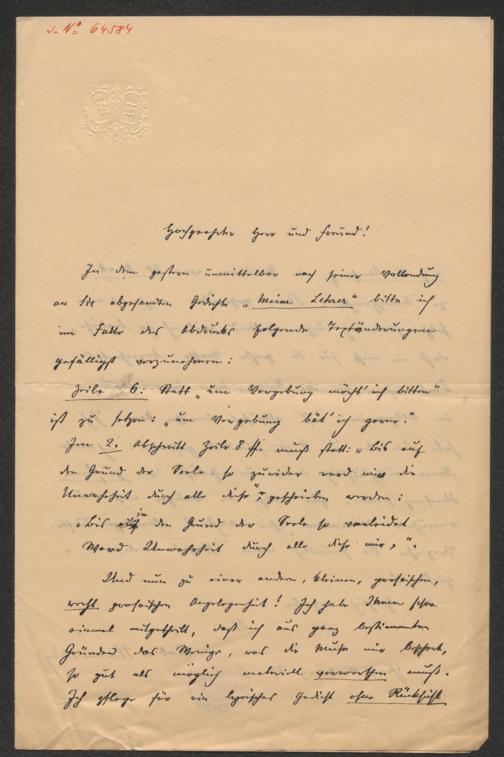 J. Nº 64584
Hochgeehrter Herr und Freund!
In dem gestern unmittelbar nach seiner Vollendung
an Sie abgesandten Gedicht „Meine Lehrer“ bitte ich
im Falle des Abdrucks folgende Textänderungen
gefälligst vorzunehmen:
Zeile 6: Statt „um Vergebung möcht' ich bitten“
ist zu setzen: „um Vergebung bät' ich gerne:“
Im 2. Abschnitt Zeile 8 ff. muß statt: „bis auf
den Grund der Seele so zuwider ward mir die
Unwahrheit durch alle diese“, geschrieben werden:
„bis in den Grund der Seele so verleidet
Ward Unwahrheit durch alle diese mir,“.
Und nun zu einer andern, kleinen, prosaischen,
recht prosaischen Angelegenheit! Ich habe Ihnen schon
einmal mitgetheilt, daß ich aus ganz bestimmten
Gründen das Wenige, was die Muse mir bescheert,
so gut als möglich materiell verwerthen muß.
Ich pflege für ein lyrisches Gedicht ohne Rücksicht